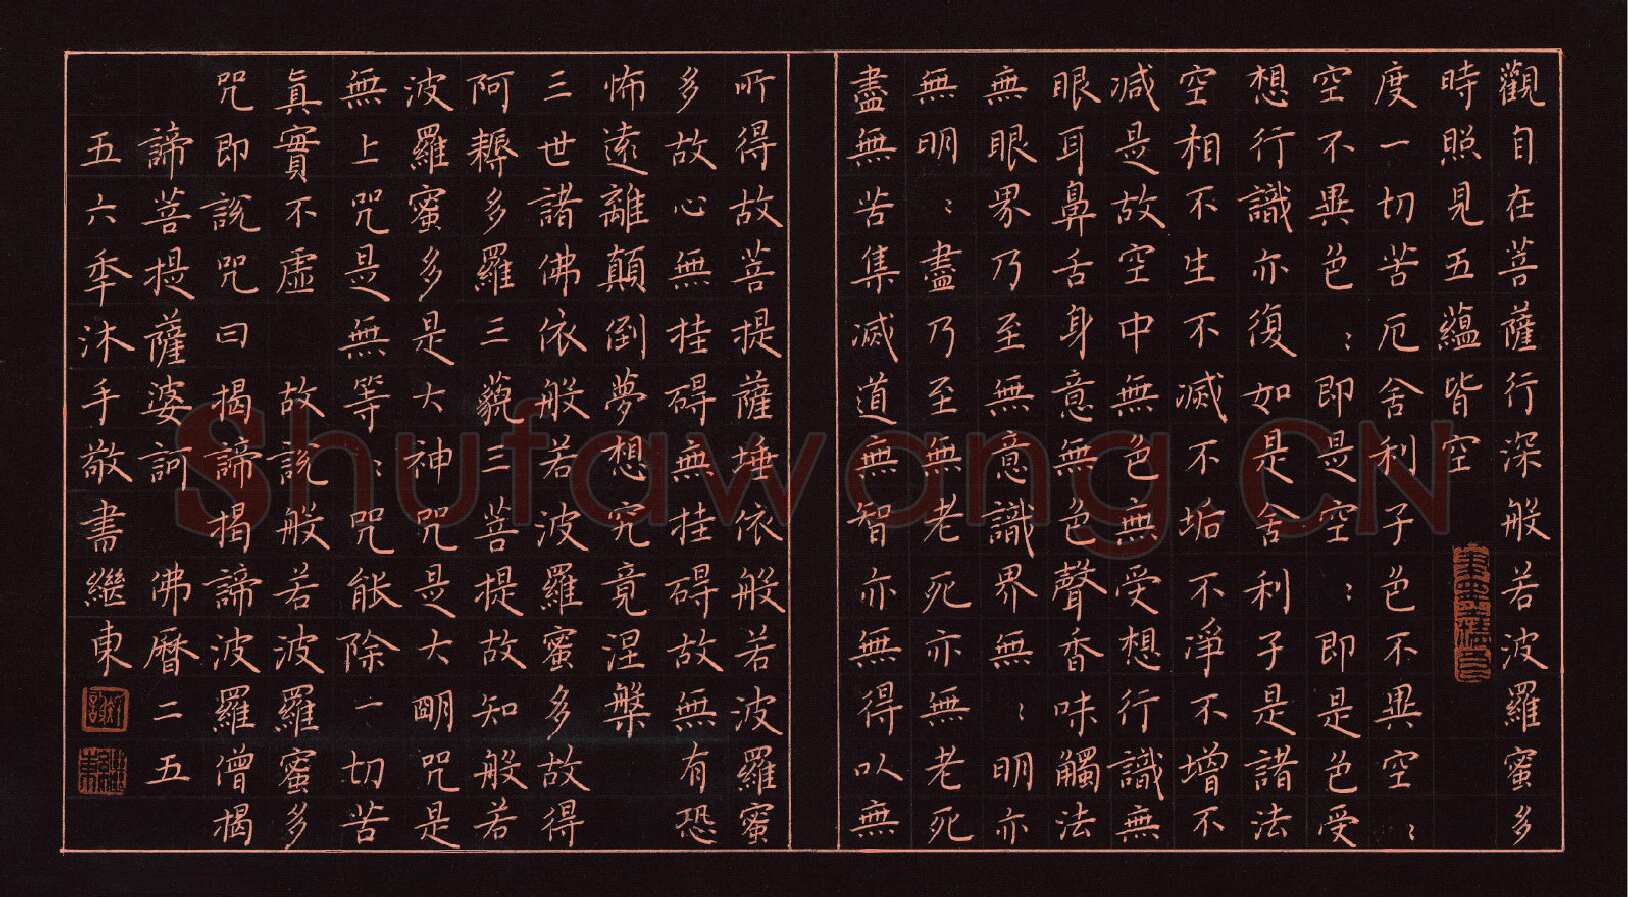 觀自在菩薩行深般若波羅蜜多
時照見五蘊皆空
度一切苦厄舍利子色不異空:
空不異色:即是空:即是色受
想行識亦復如是舍利子是諸法
空相不生不滅不垢不淨不增不
減是故空中無色無受想行識無
眼耳鼻舌身意無色聲香味觸法
無眼界乃至無意識界無:明亦
無明:盡乃至無老死亦無老死
盡無苦集滅道無智亦無得以無
所得故菩提薩埵依般若波羅蜜
多故心無挂碍無挂碍故無有恐
怖遠離顛倒夢想究竟涅槃
三世諸佛依般若波羅蜜多故得
阿耨多羅三藐三菩提故知般若
波羅蜜多是大神咒是大明咒是
無上咒是無等:咒能除一切苦
真實不虛 故說般若波羅蜜多
咒即說咒曰揭諦揭諦波羅僧揭
諦菩提薩婆訶 佛曆二五
五六秊沐手敬書繼東
Shufawang.CN